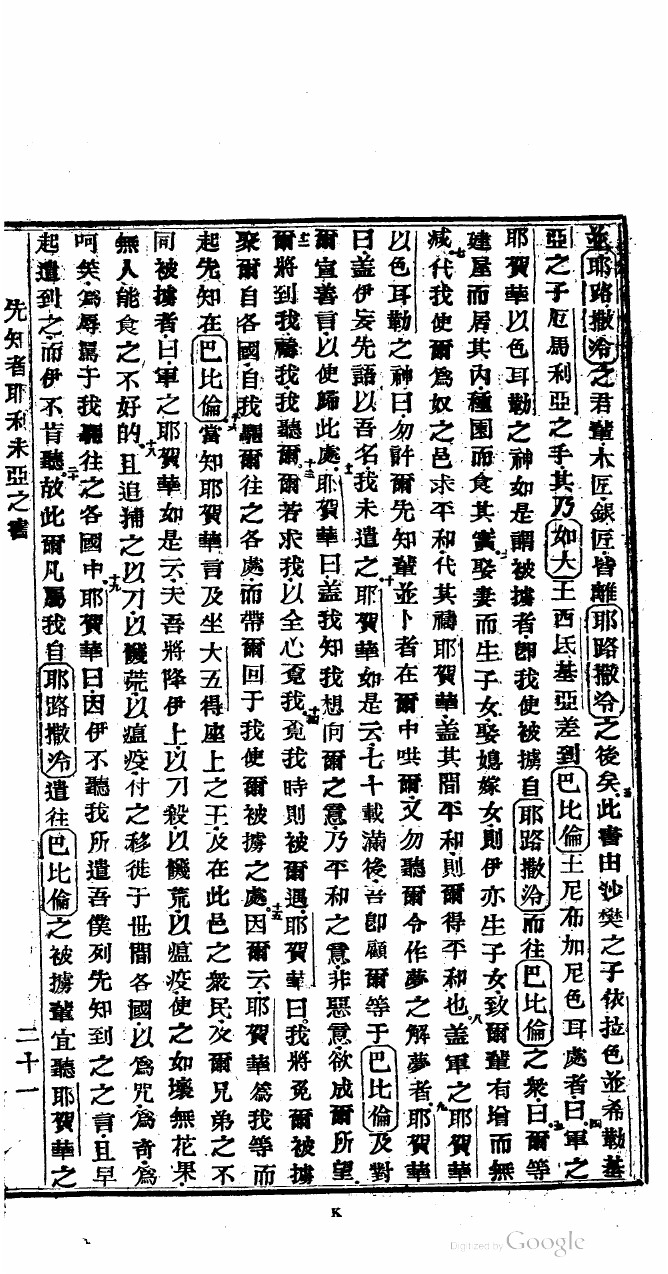 並耶路撒冷之君輩木匠銀匠皆離耶路撒冷之後矣三此書由沙樊之子依拉色並希勒基
亞之子厄馬利亞之手其乃如大王西氐基亞差到巴比倫王尼布加尼色耳處者曰四軍之
耶賀華以色耳勒之神如是謂被擄者即我使被擄自耶路撒冷而往巴比倫之衆曰五爾等
建屋而居其內種園而食其實六娶妻而生子女娶媳嫁女則伊亦生子女致爾輩有增而無
減七代我使爾爲奴之邑求平和代其禱耶賀華蓋其間平和則爾得平和也八蓋軍之耶賀華
以色耳勒之神曰勿許爾先知輩並卜者在爾中哄爾又勿聽爾令作夢之解夢者九耶賀華
曰蓋伊妄先語以吾名我未遣之十耶賀華如是云七十載滿後吾即顧爾等于巴比倫及對
爾宣善言以使歸此處十一耶賀華曰蓋我知我想向爾之意乃平和之意非惡意欲成爾所望
十二爾將到我禱我我聽爾十三爾若求我以全心覔我十四覔我時則被爾遇耶賀華曰我將免爾被擄
聚爾自各國自我驅爾往之各處而帶爾回于我使爾被擄之處十五因爾云耶賀華爲我等而
起先知在巴比倫十六當知耶賀華言及坐大五得座上之王及在此邑之衆民及爾兄弟之不
同被擄者曰十七軍之耶賀華如是云夫吾將降伊上以刀殺以饑荒以瘟疫使之如壞無花果
無人能食之不好的十八且追捕之以刀以饑荒以瘟疫付之移徙于世間各國以爲咒爲奇爲
呵笑爲辱罵于我驅往之各國中十九耶賀華曰因伊不聽我所遣吾僕列先知到之之言且早
起遣到之而伊不肯聽二十故此爾凡屬我自耶路撒冷遣往巴比倫之被擄輩宜聽耶賀華之
先知者耶利未亞之書
二十一
K
Digitized by Google